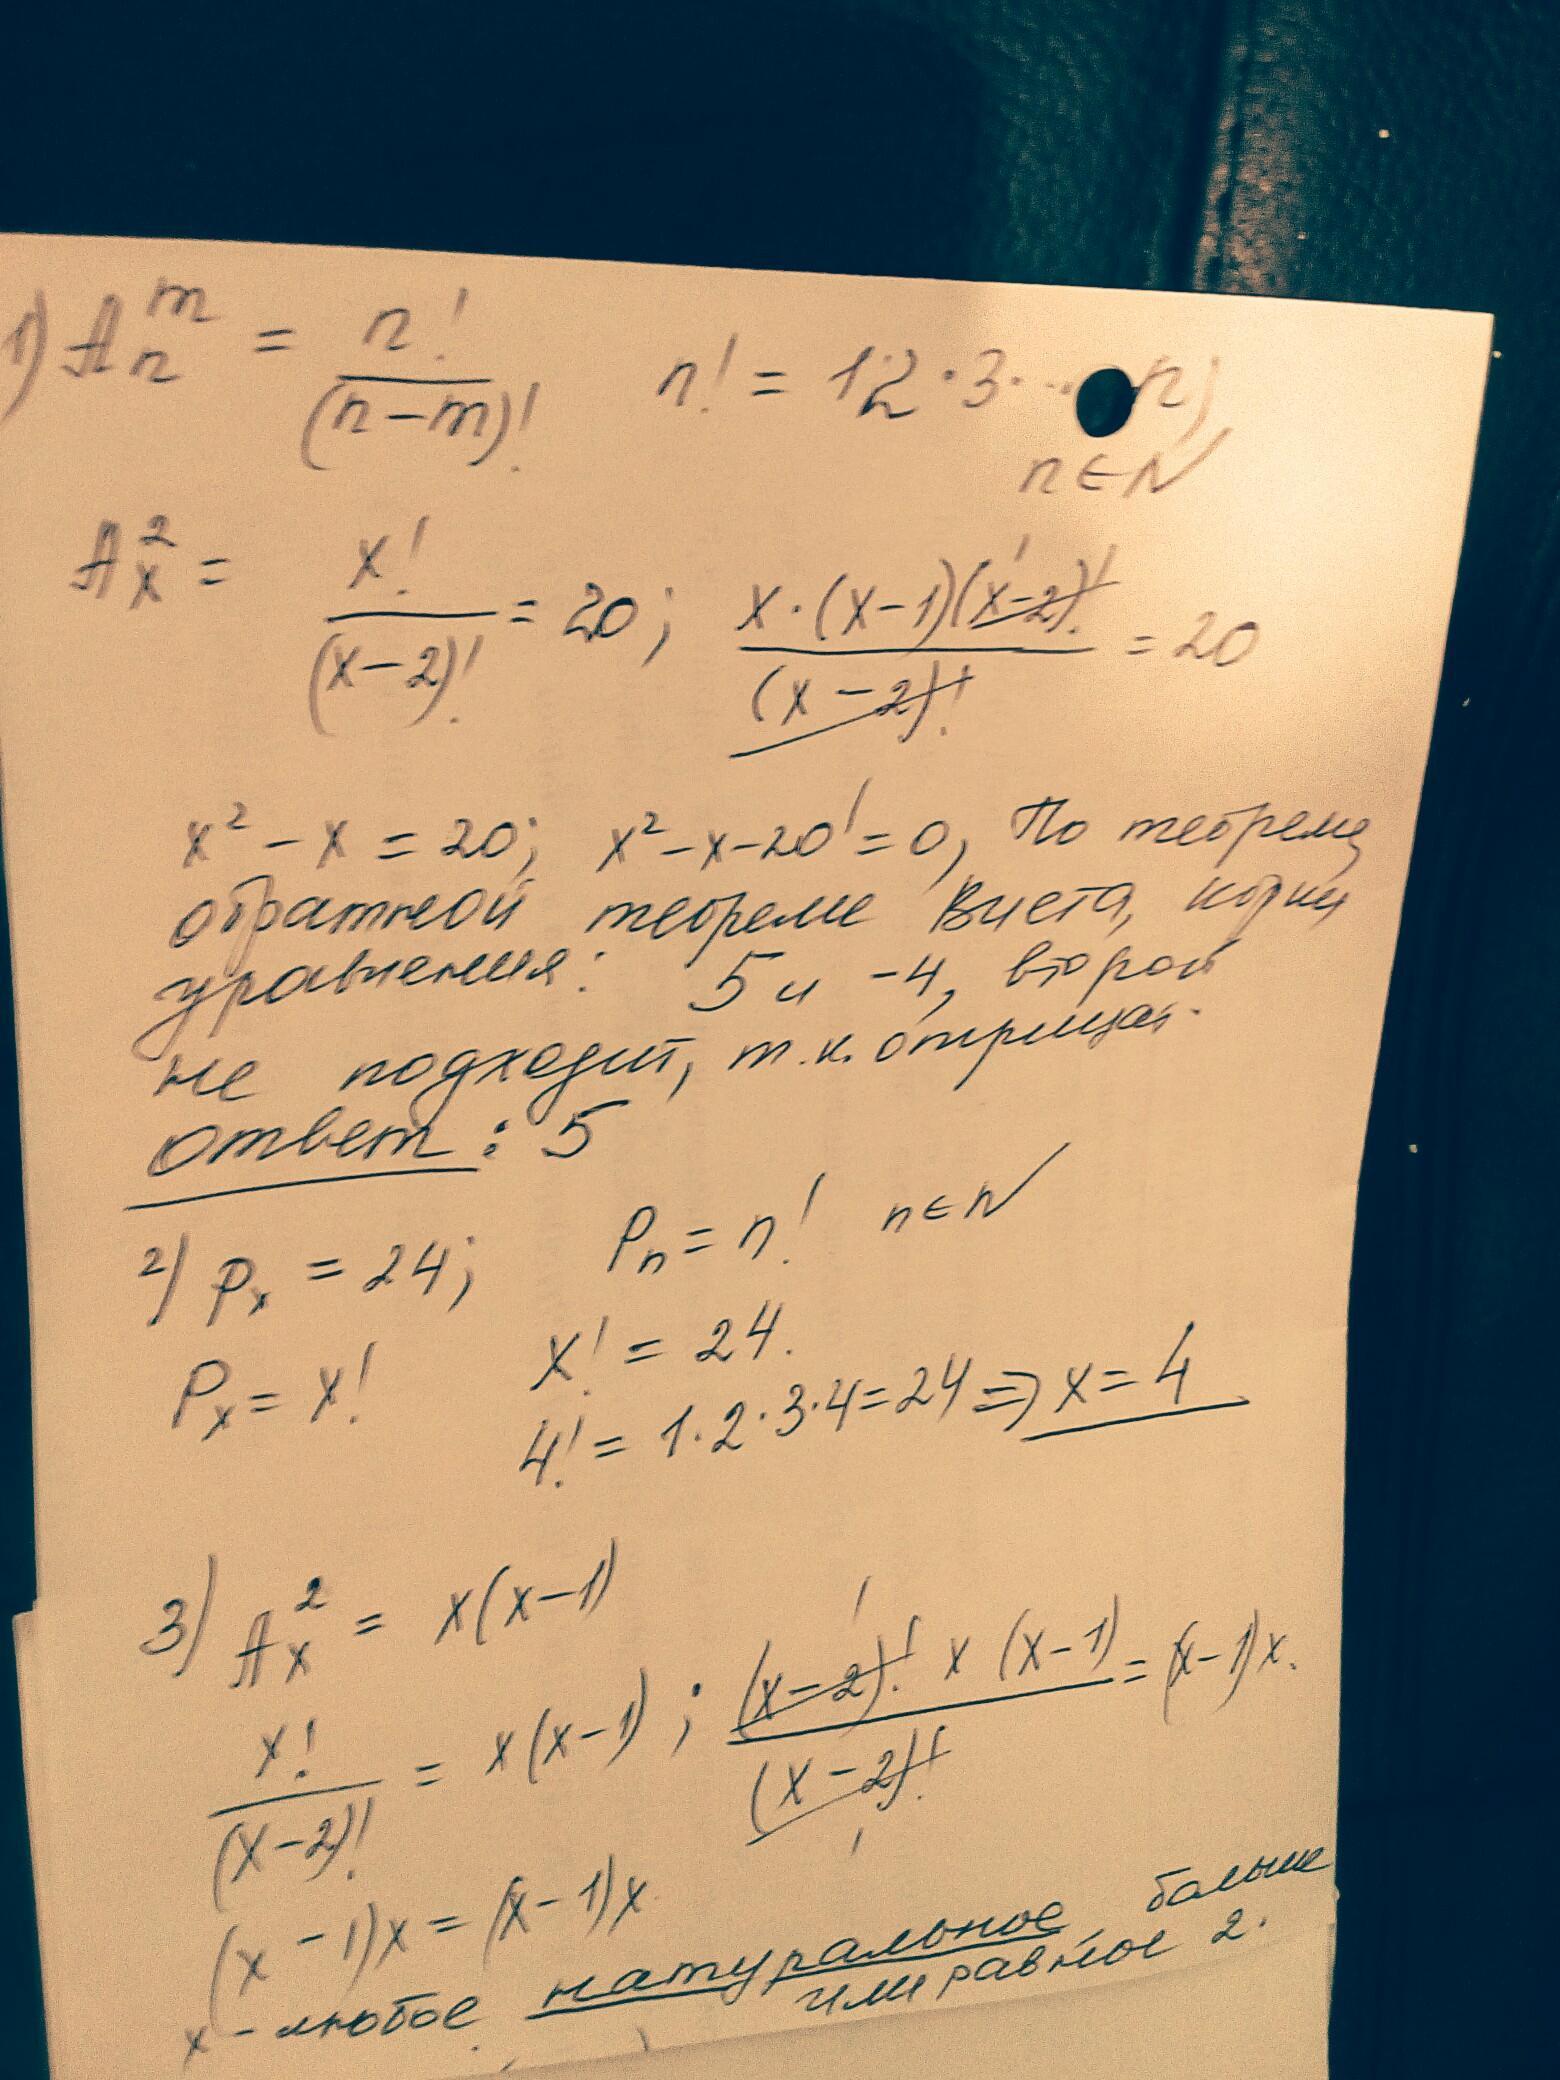 1) Aₙᵐ = n!/(n-m)! n! = 1·2·3·...·n;
n∈N
Aₓ² = x!/(x-2)! = 20; x·(x-1)(x-2)!/(x-2)! = 20
x² - x = 20; x² - x - 20 = 0, По теореме,
обратной теореме Виета, корни
уравнения: 5 и -4, второй
не подходит, т.к. отрицат.
ответ: 5
2) Pₓ = 24; Pₙ = n! n∈N
Pₓ = x! x! = 24.
4! = 1·2·3·4 = 24 => x = 4
3) Aₓ² = x(x-1)
x!/(x-2)! = x(x-1); (x-2)! x (x-1)/(x-2)! = (x-1)x.
(x-1)x = (x-1)x
x - любое натуральное больше
или равное 2.